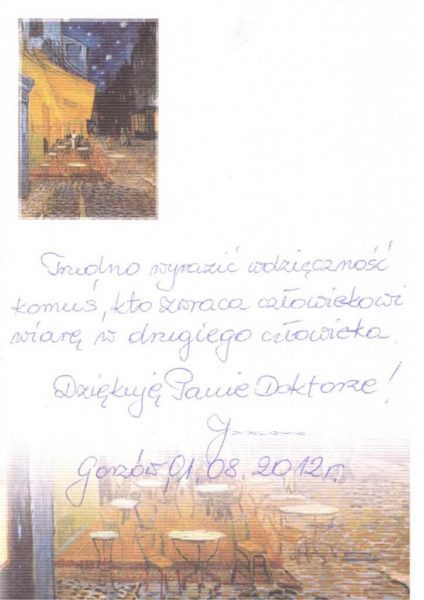 Trudno wyrazić wdzięczność
komuś, kto zwraca człowiekowi
wiarę w drugiego człowieka.
Dziękuję Panie Doktorze!
Gorzów 01.08.2012r.